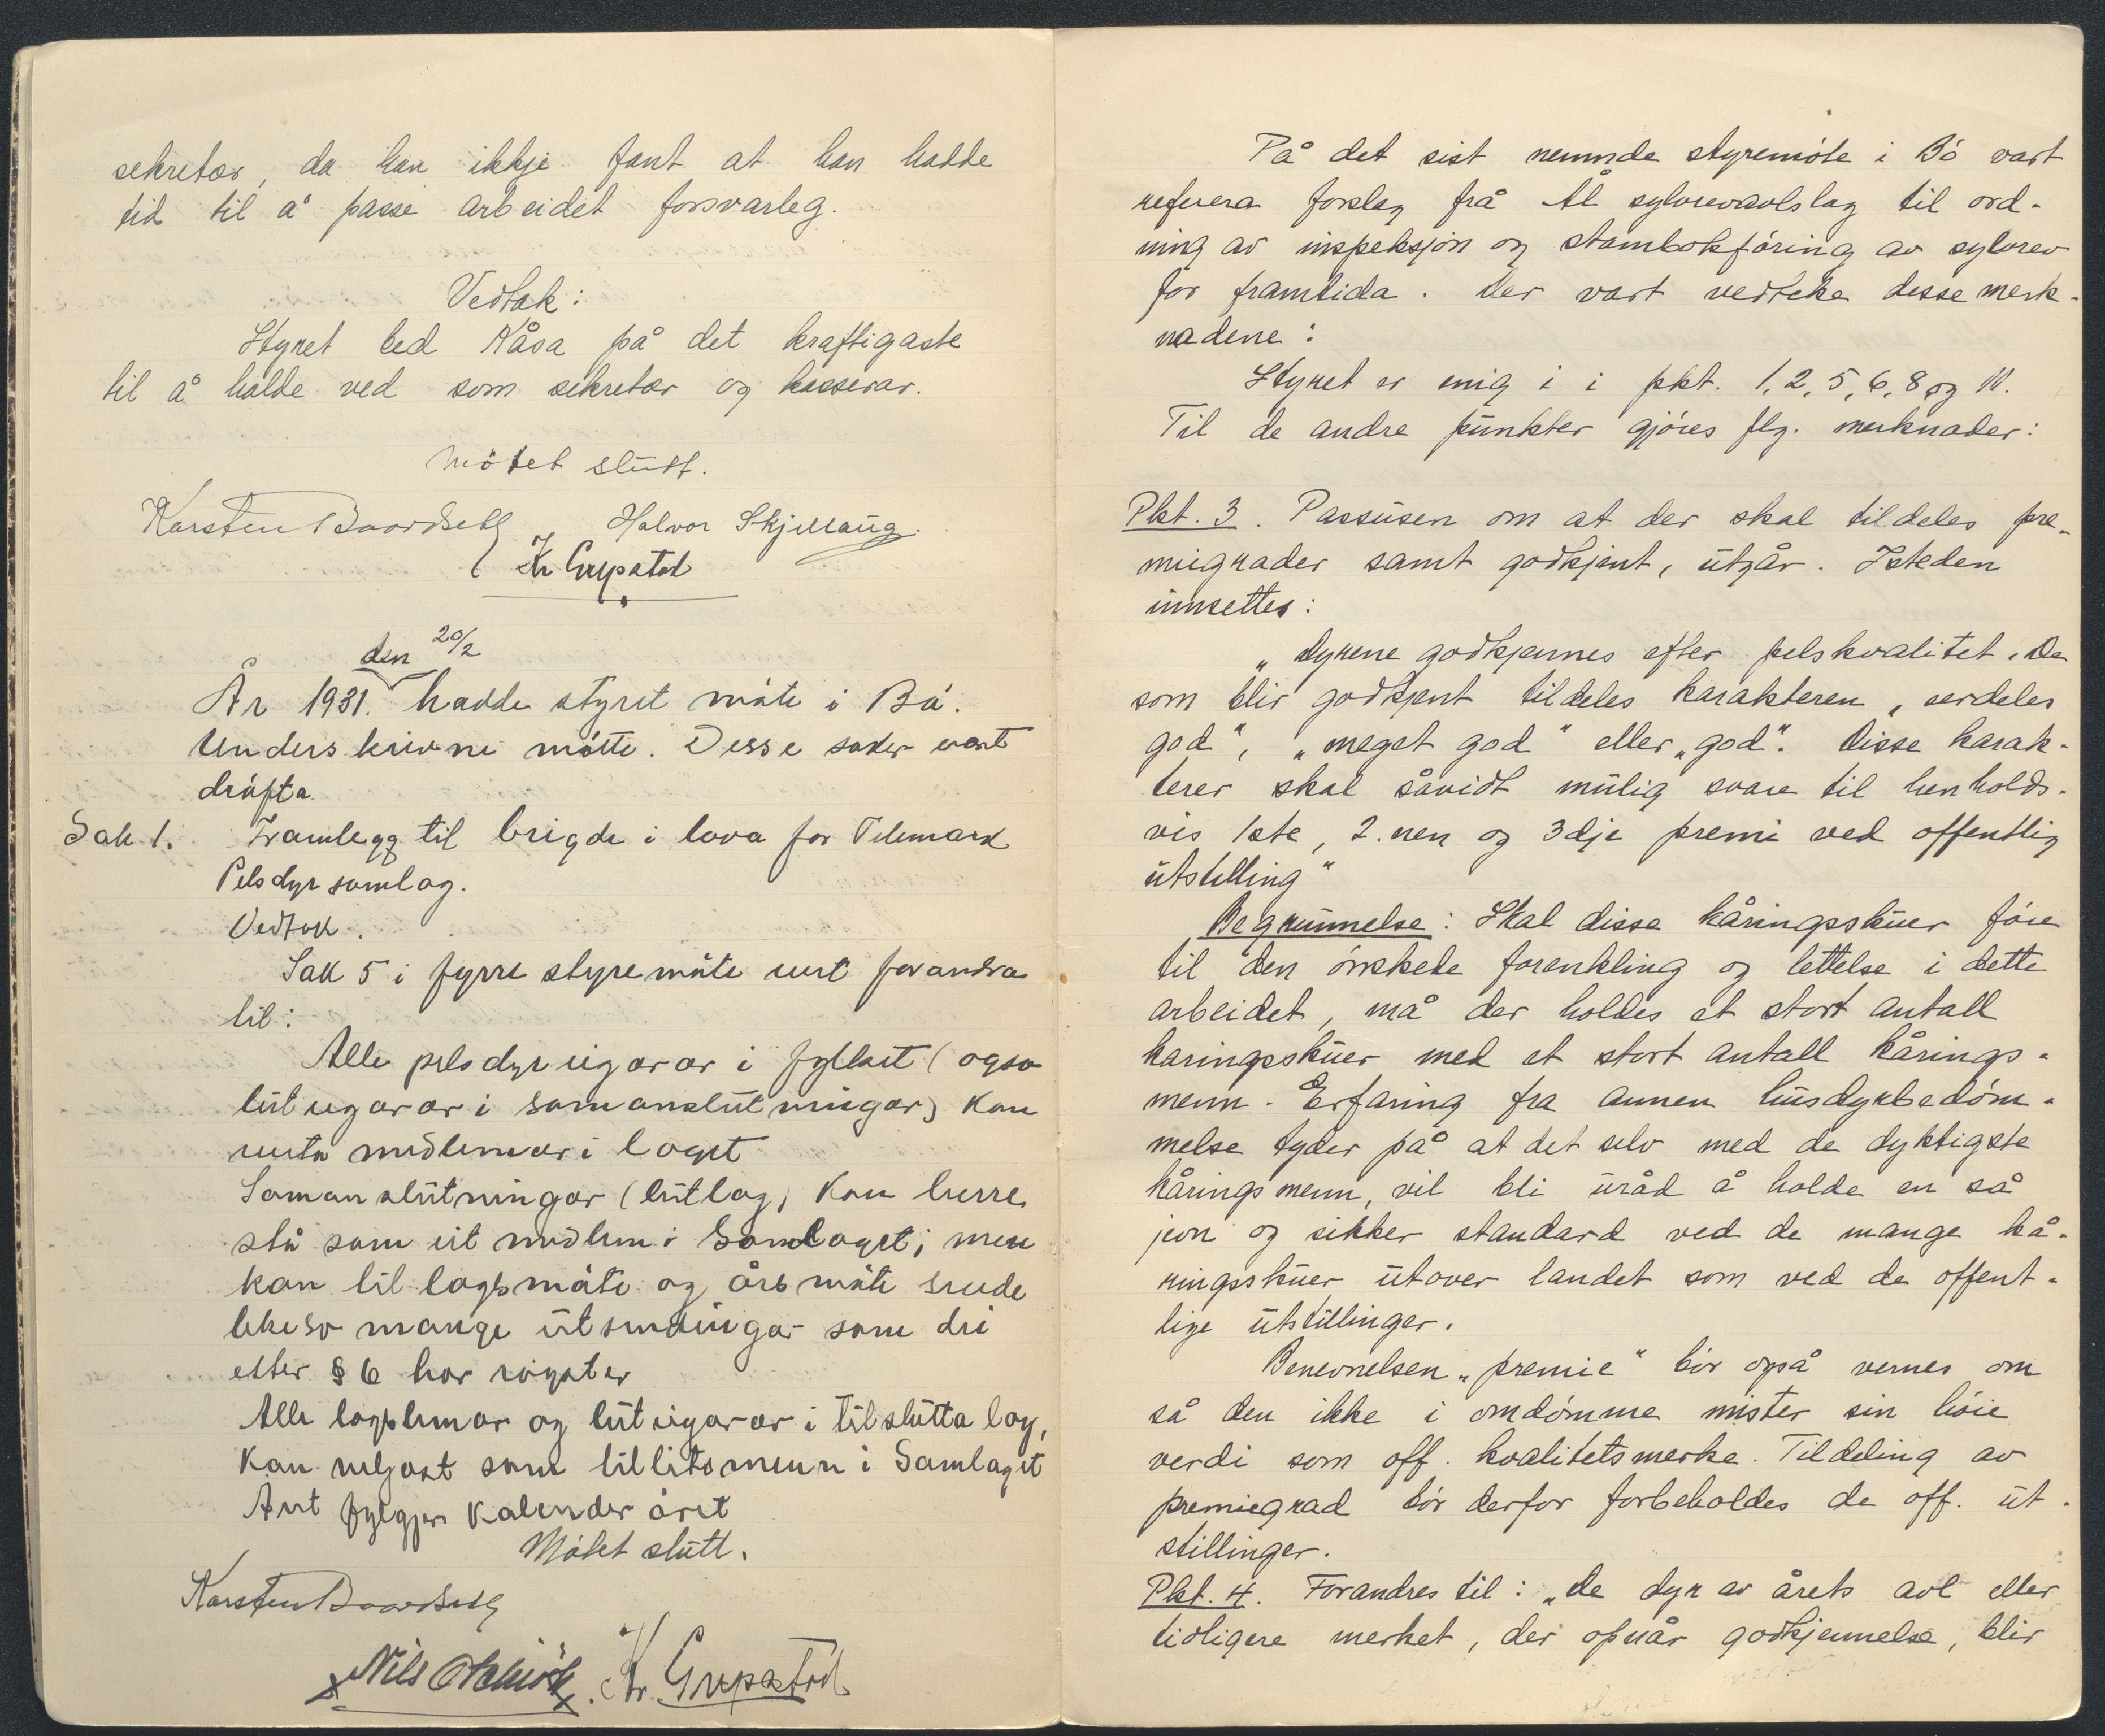 sekretær, da han ikkje fant at han hadde
tid til å passe arbeidet forsvarleg.
Vedtak:
Styret bed Kåsa på det kraftigaste
til å halde ved som sekretær og kasserar.
Møtet slutt.
Karsten Baardseth Halvor Skjellaug.
Kr Grepstad
den 20/2
År 1931. hadde styret møte i Bø.
Underskrivne møtte. Desse saker vart
drøfta
Sak 1. Framlegg til brigde i lova for Telemark
Pelsdyrsamlag.
Vedtak.
Sak 5 i fyrre styremøte vert forandra
til:
Alle pelsdyreigarar i fylket (ogso
luteigarar i samanslutningar) kan
verta medlemar i laget
Samanslutningar (lutlag) kan berre
stå som eit medlem i Samlaget; men
kan til lagsmøte og årsmøte sende
likeso mange utsendingar som dei
etter § 6 har røyster
Alle lagslemar og luteigarar i tilslutta lag,
kan veljast som tillitsmenn i Samlaget
Året fylgjer kalenderåret
Møtet slutt.
Karsten Baardseth
Nils Kr. Grepstad
På det sist nemnde styremøte i Bø vart
referera forslag frå Ål sylvrevavlslag til ord-
ning av inspeksjon og stambokføring av sylvrev
for framtida. Der vart vedteke desse merk-
nadene:
Styret er enig i i pkt. 1, 2, 5, 6, 8 og 10.
Til de andre punkter gjøres flg. merknader:
Pkt. 3. Passusen om at der skal tildeles pre-
miegrader samt godkjent, utgår. Isteden
innsettes:
„Dyrene godkjennes efter pelskvalitet. De
som blir godkjent tildeles karakteren „serdeles
god", „meget god" eller „god". Disse karak-
terer skal såvidt mulig svare til henholds-
vis 1ste, 2.nen og 3dje premi ved offentlig
utstilling"
Begrunnelse: Skal disse kåringsskuer føre
til den ønskede forenkling og lettelse i dette
arbeidet, må der holdes et stort antall
kåringsskuer med et stort antall kårings-
menn. Erfaring fra annen husdyrbedøm-
melse tyder på at det selv med de dyktigste
kåringsmenn, vil bli uråd å holde en så
jevn og sikker standard ved de mange kå-
ringsskuer utover landet som ved de offent-
lige utstillinger.
Benevnelsen „premie" bør også vernes om
så den ikke i omdømme mister sin høie
verdi som off. kvalitetsmerke. Tildeling av
premiegrad bør derfor forbeholdes de off. ut-
stillinger.
Pkt. 4. Forandres til: „De dyr av årets avl eller
tidligere merket, der opnår godkjennelse, blir